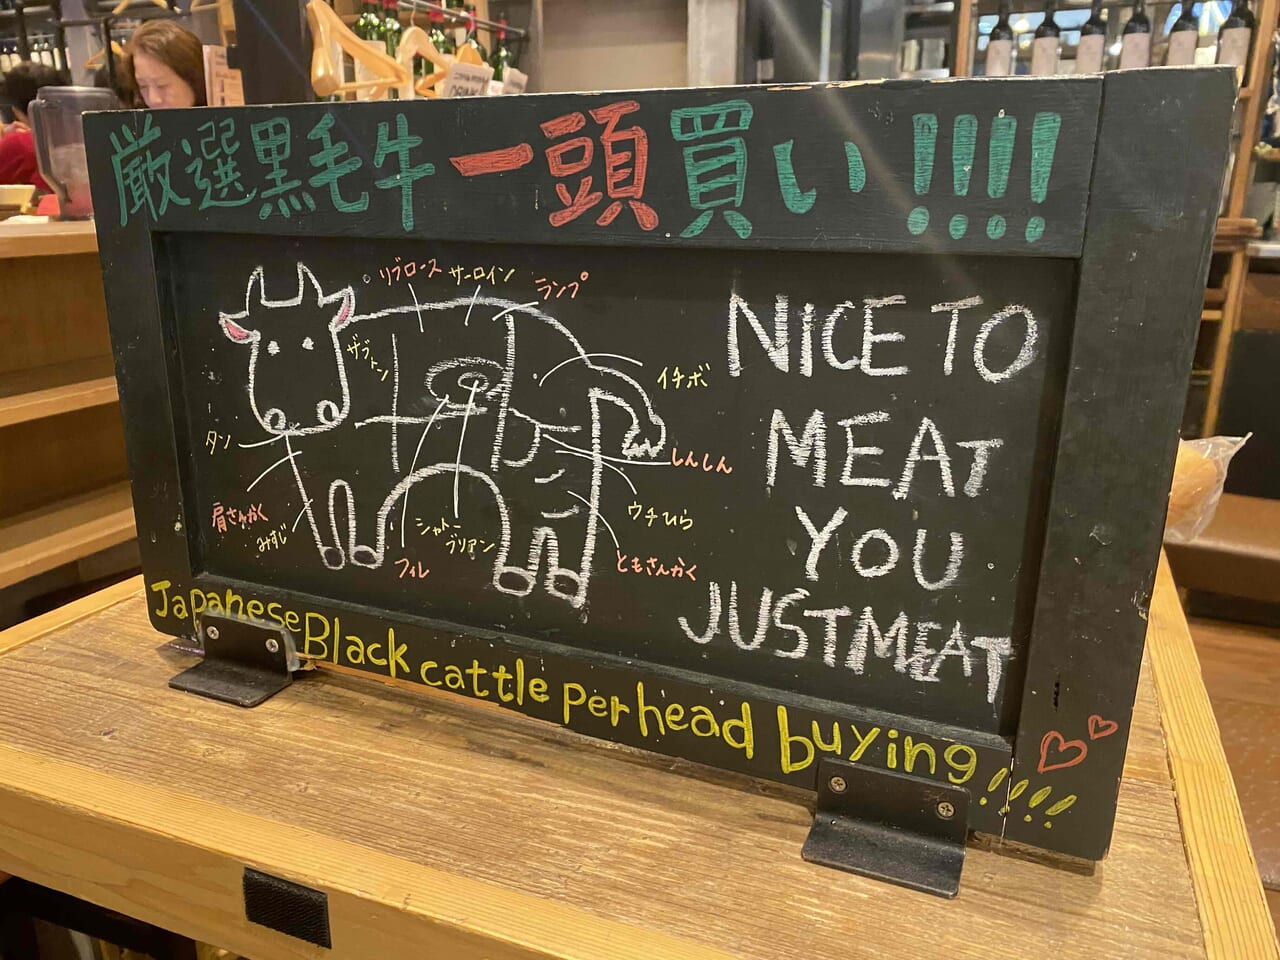 厳選黒毛牛一頭買い!!!!
リブロース
サーロイン
ランプ
ザブトン
イチボ
タン
しんしん
肩さんかく
みすじ
シャトーブリアン
フィレ
ウチひら
ともさんかく
NICE TO
MEAT
YOU
JUST MEAT
Japanese Black cattle per head buying!!!!